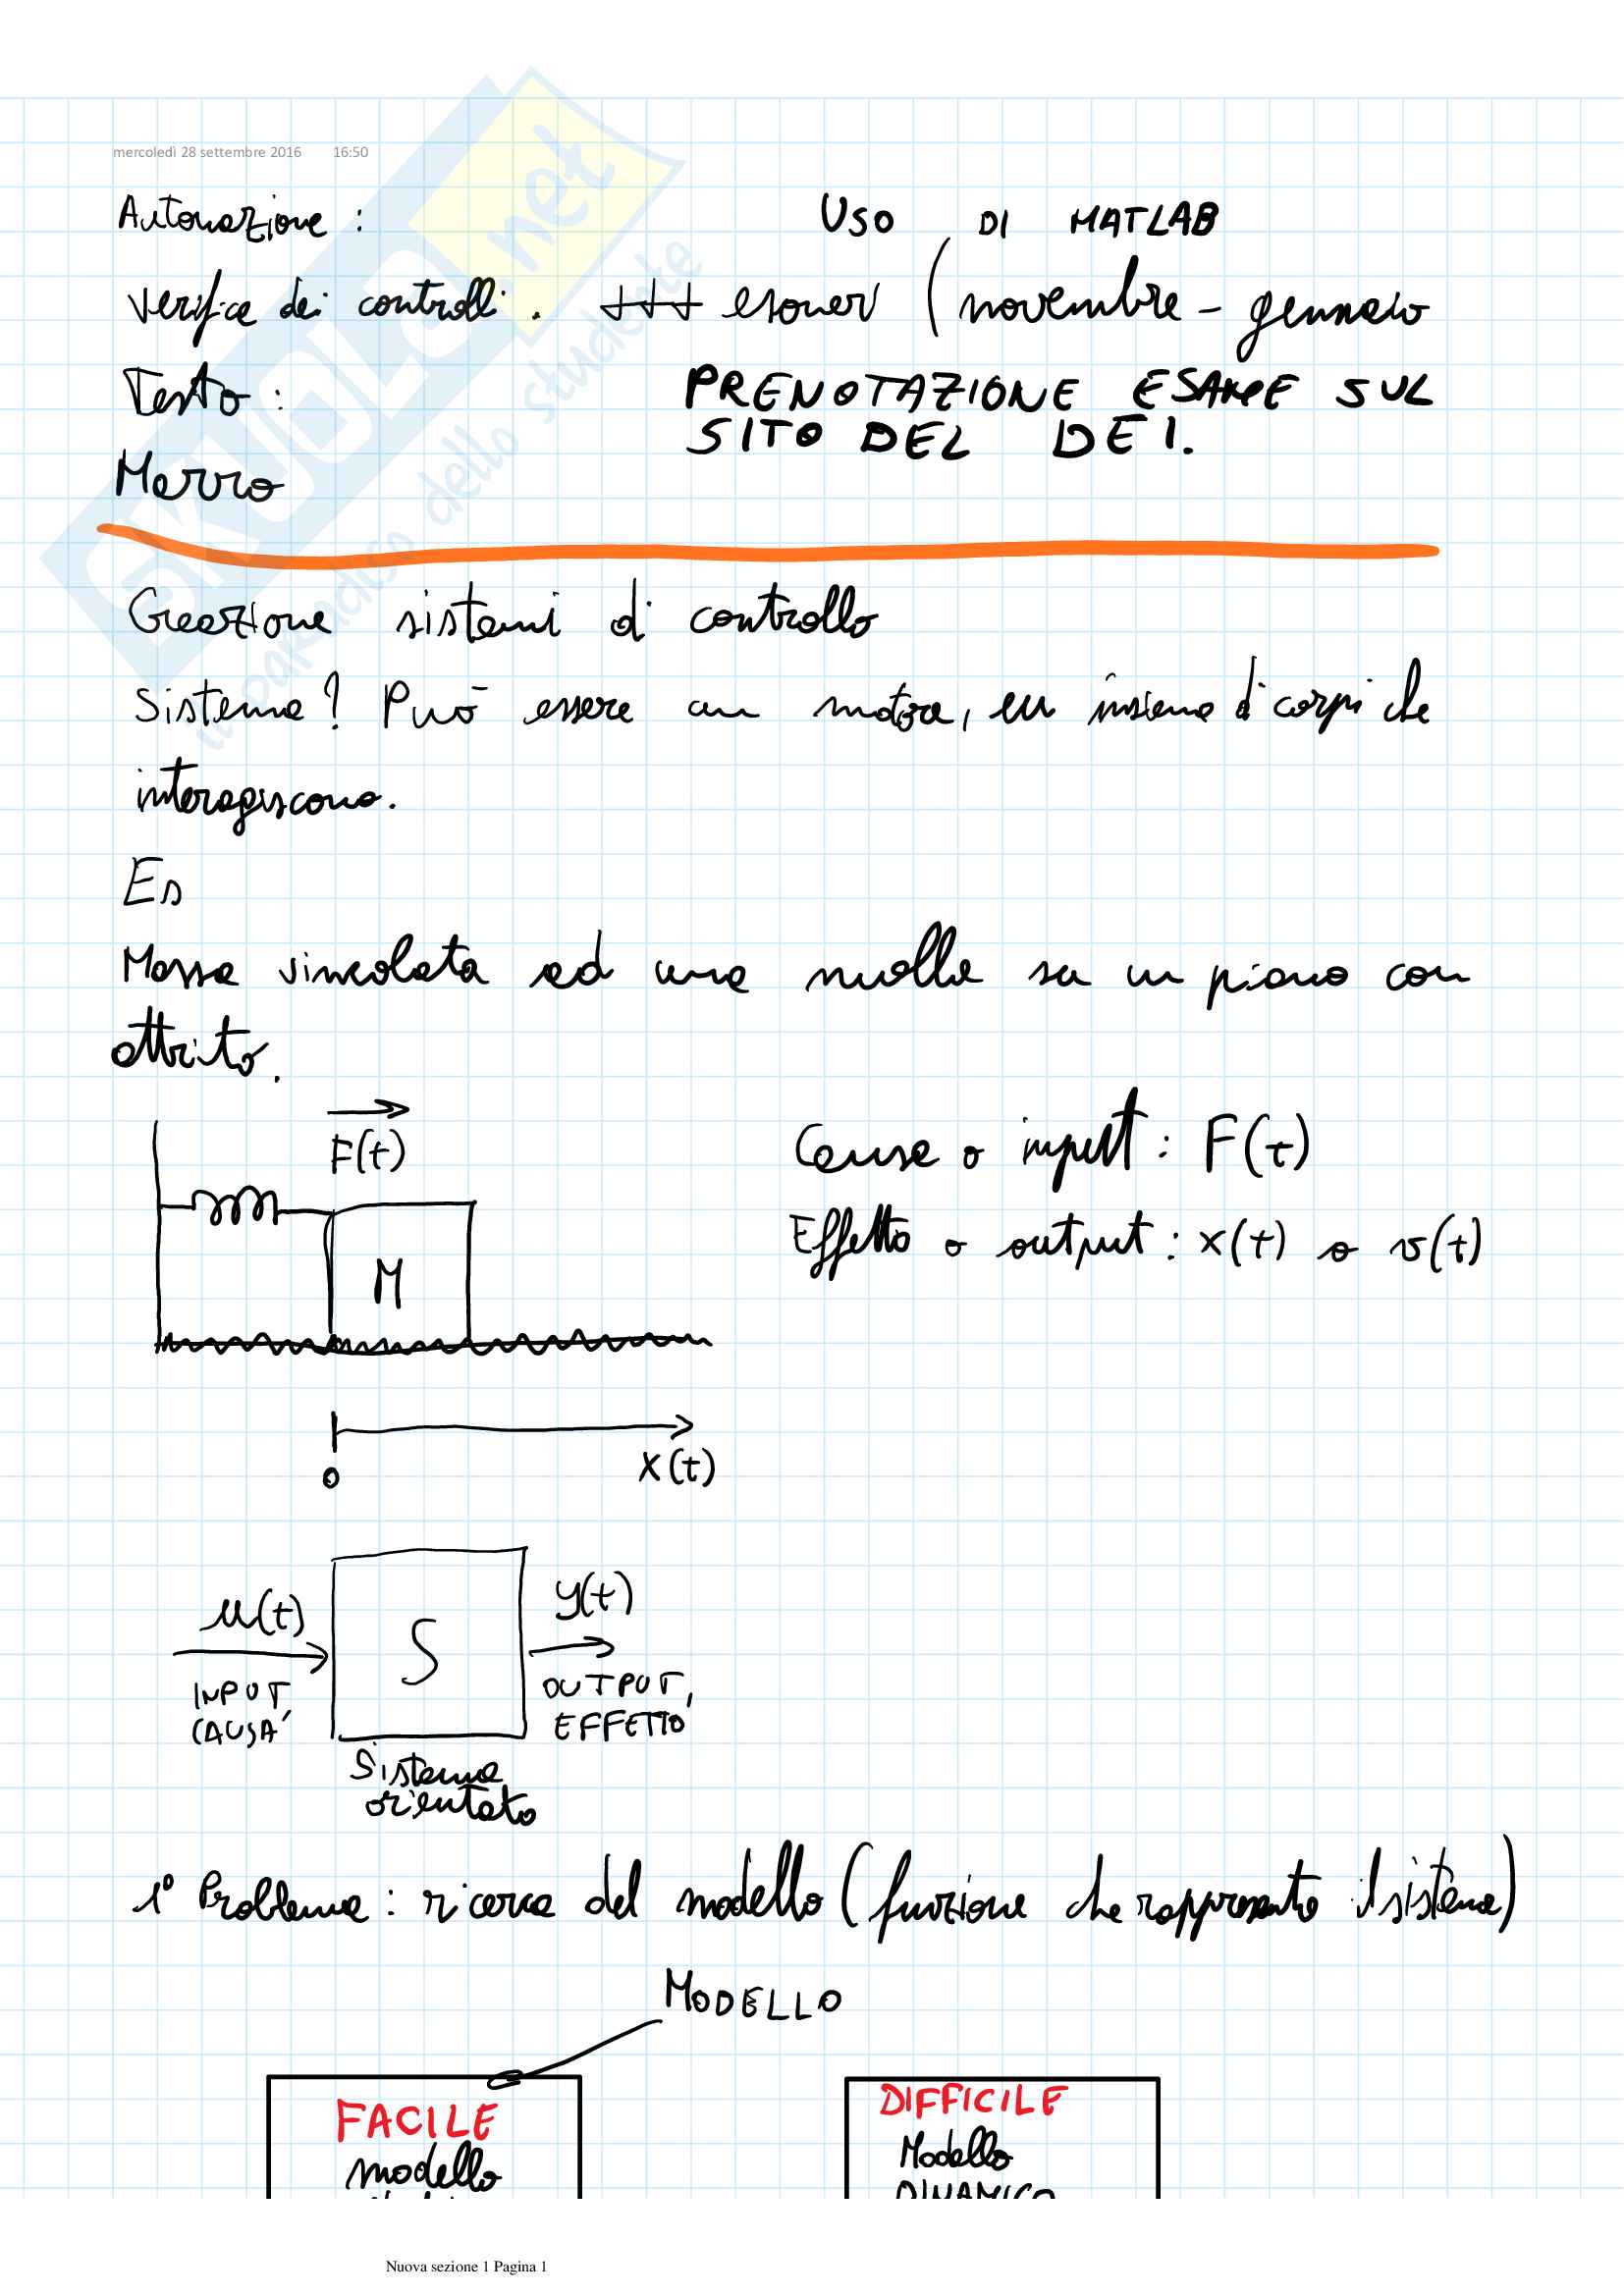 mercoledì 28 settembre 2016 16:50
Automazione : USO DI MATLAB
Verifica dei controlli . +++ esoneri ( novembre - gennaio
Testo : PRENOTAZIONE ESAME SUL
SITO DEL DEI.
Marro
Creazione sistemi di controllo
Sistema? Può essere un motore, un insieme di corpi che
interagiscono.
Es
Massa vincolata ad una molla su un piano con
attrito.
F(t)
Causa o input : F(t)
Effetto o output : x(t) o v(t)
M
0 X(t)
u(t) S y(t)
INPUT, OUTPUT,
CAUSA EFFETTO
Sistema
orientato
1° Problema : ricerca del modello (funzione che rappresenta il sistema)
MODELLO
FACILE DIFFICILE
modello Modello
DINAMICO
Nuova sezione 1 Pagina 1
SKUOLA.net
il paradiso dello studente